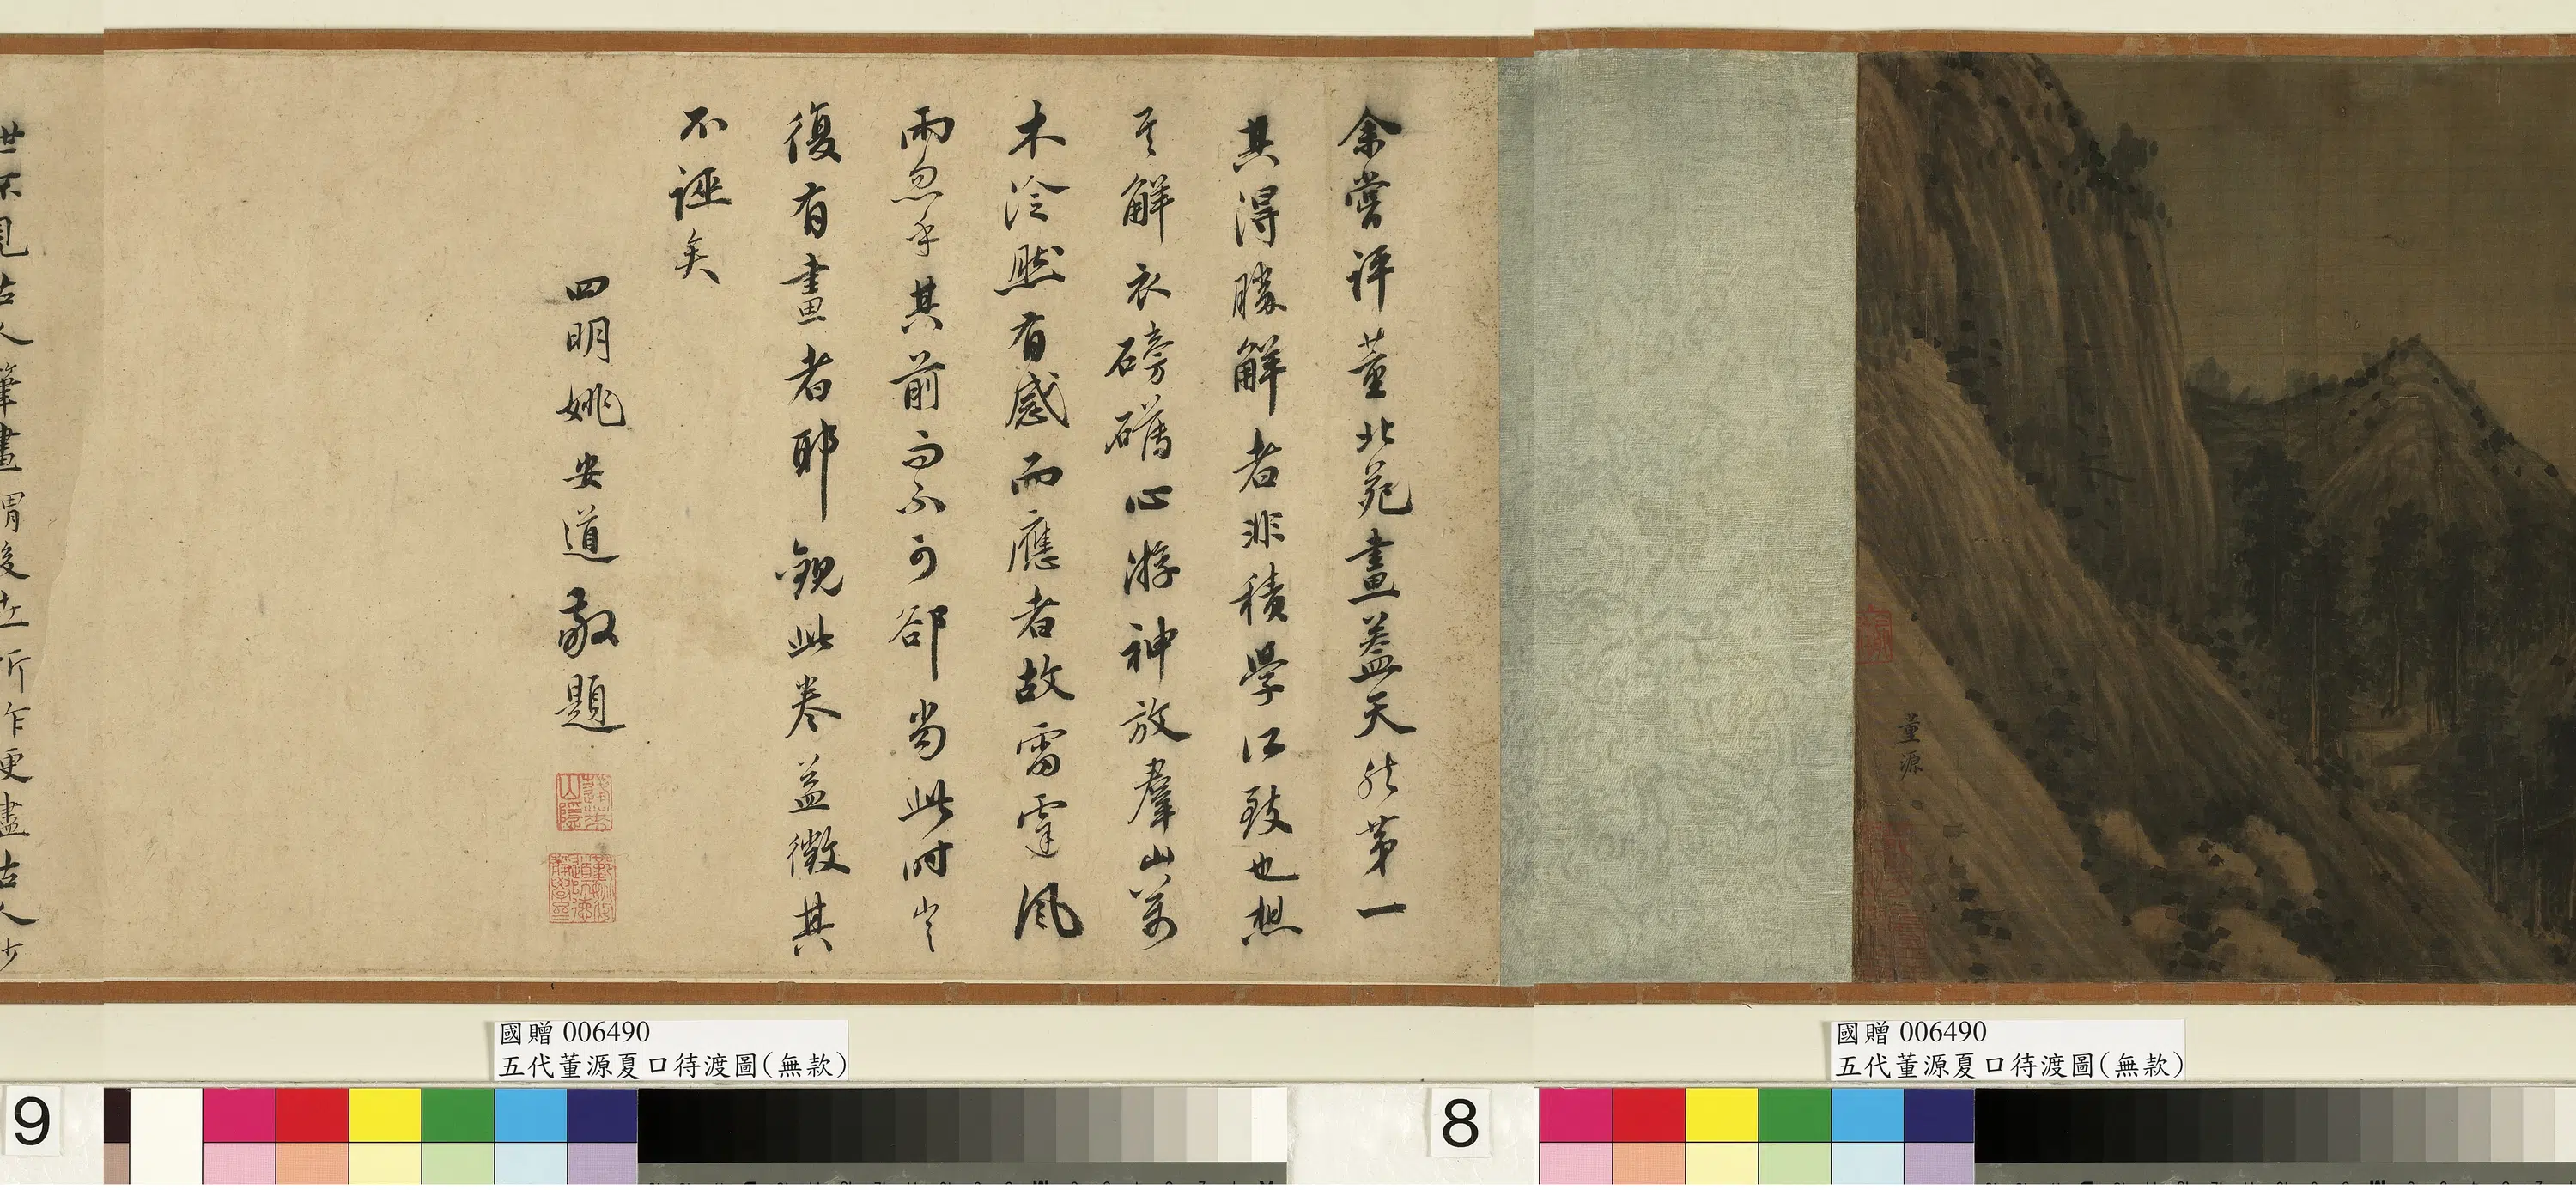 董源
余嘗評董北苑畫蓋天能第一
其得勝解者非積學所致也想
其解衣磅礴心游神放羣山萬
木泠然有感而應者故雷霆風
雨忽乎其前而不可卻當此時豈
復有畫者耶觀此卷益徵其
不誣矣
四明姚安道敬題
世不見古人筆畫謂後世所作更盡古人少
國贈 006490
五代董源夏口待渡圖(無款)
國贈 006490
五代董源夏口待渡圖(無款)
9
8